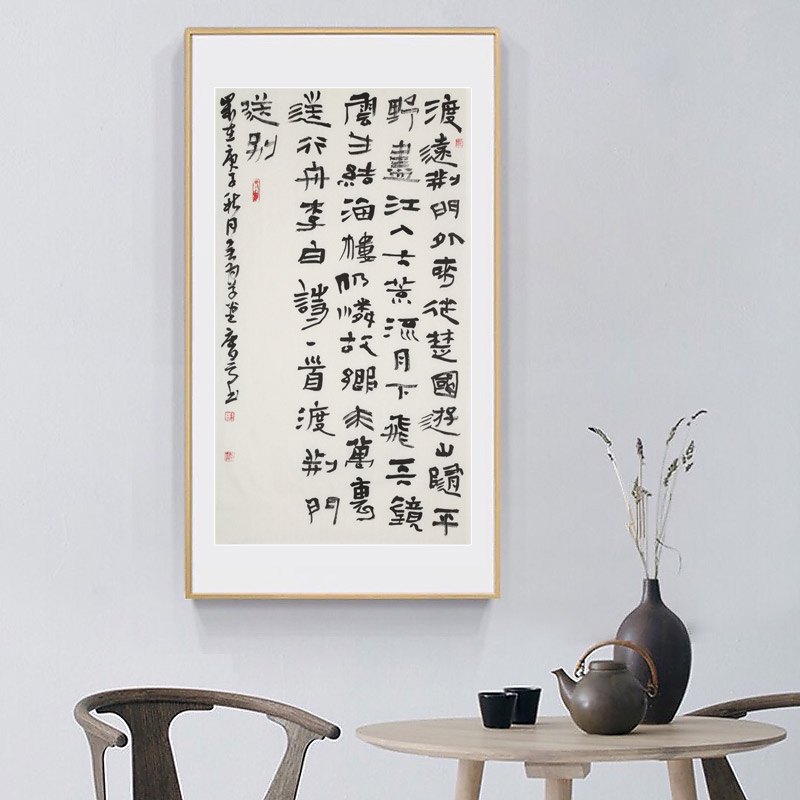 渡遠荊門外來從楚國遊山隨平
野盡江入大荒流月下飛天鏡
雲生結海樓仍憐故鄉水萬裏
送行舟李白詩一首渡荊門
送別
歲在庚子秋月